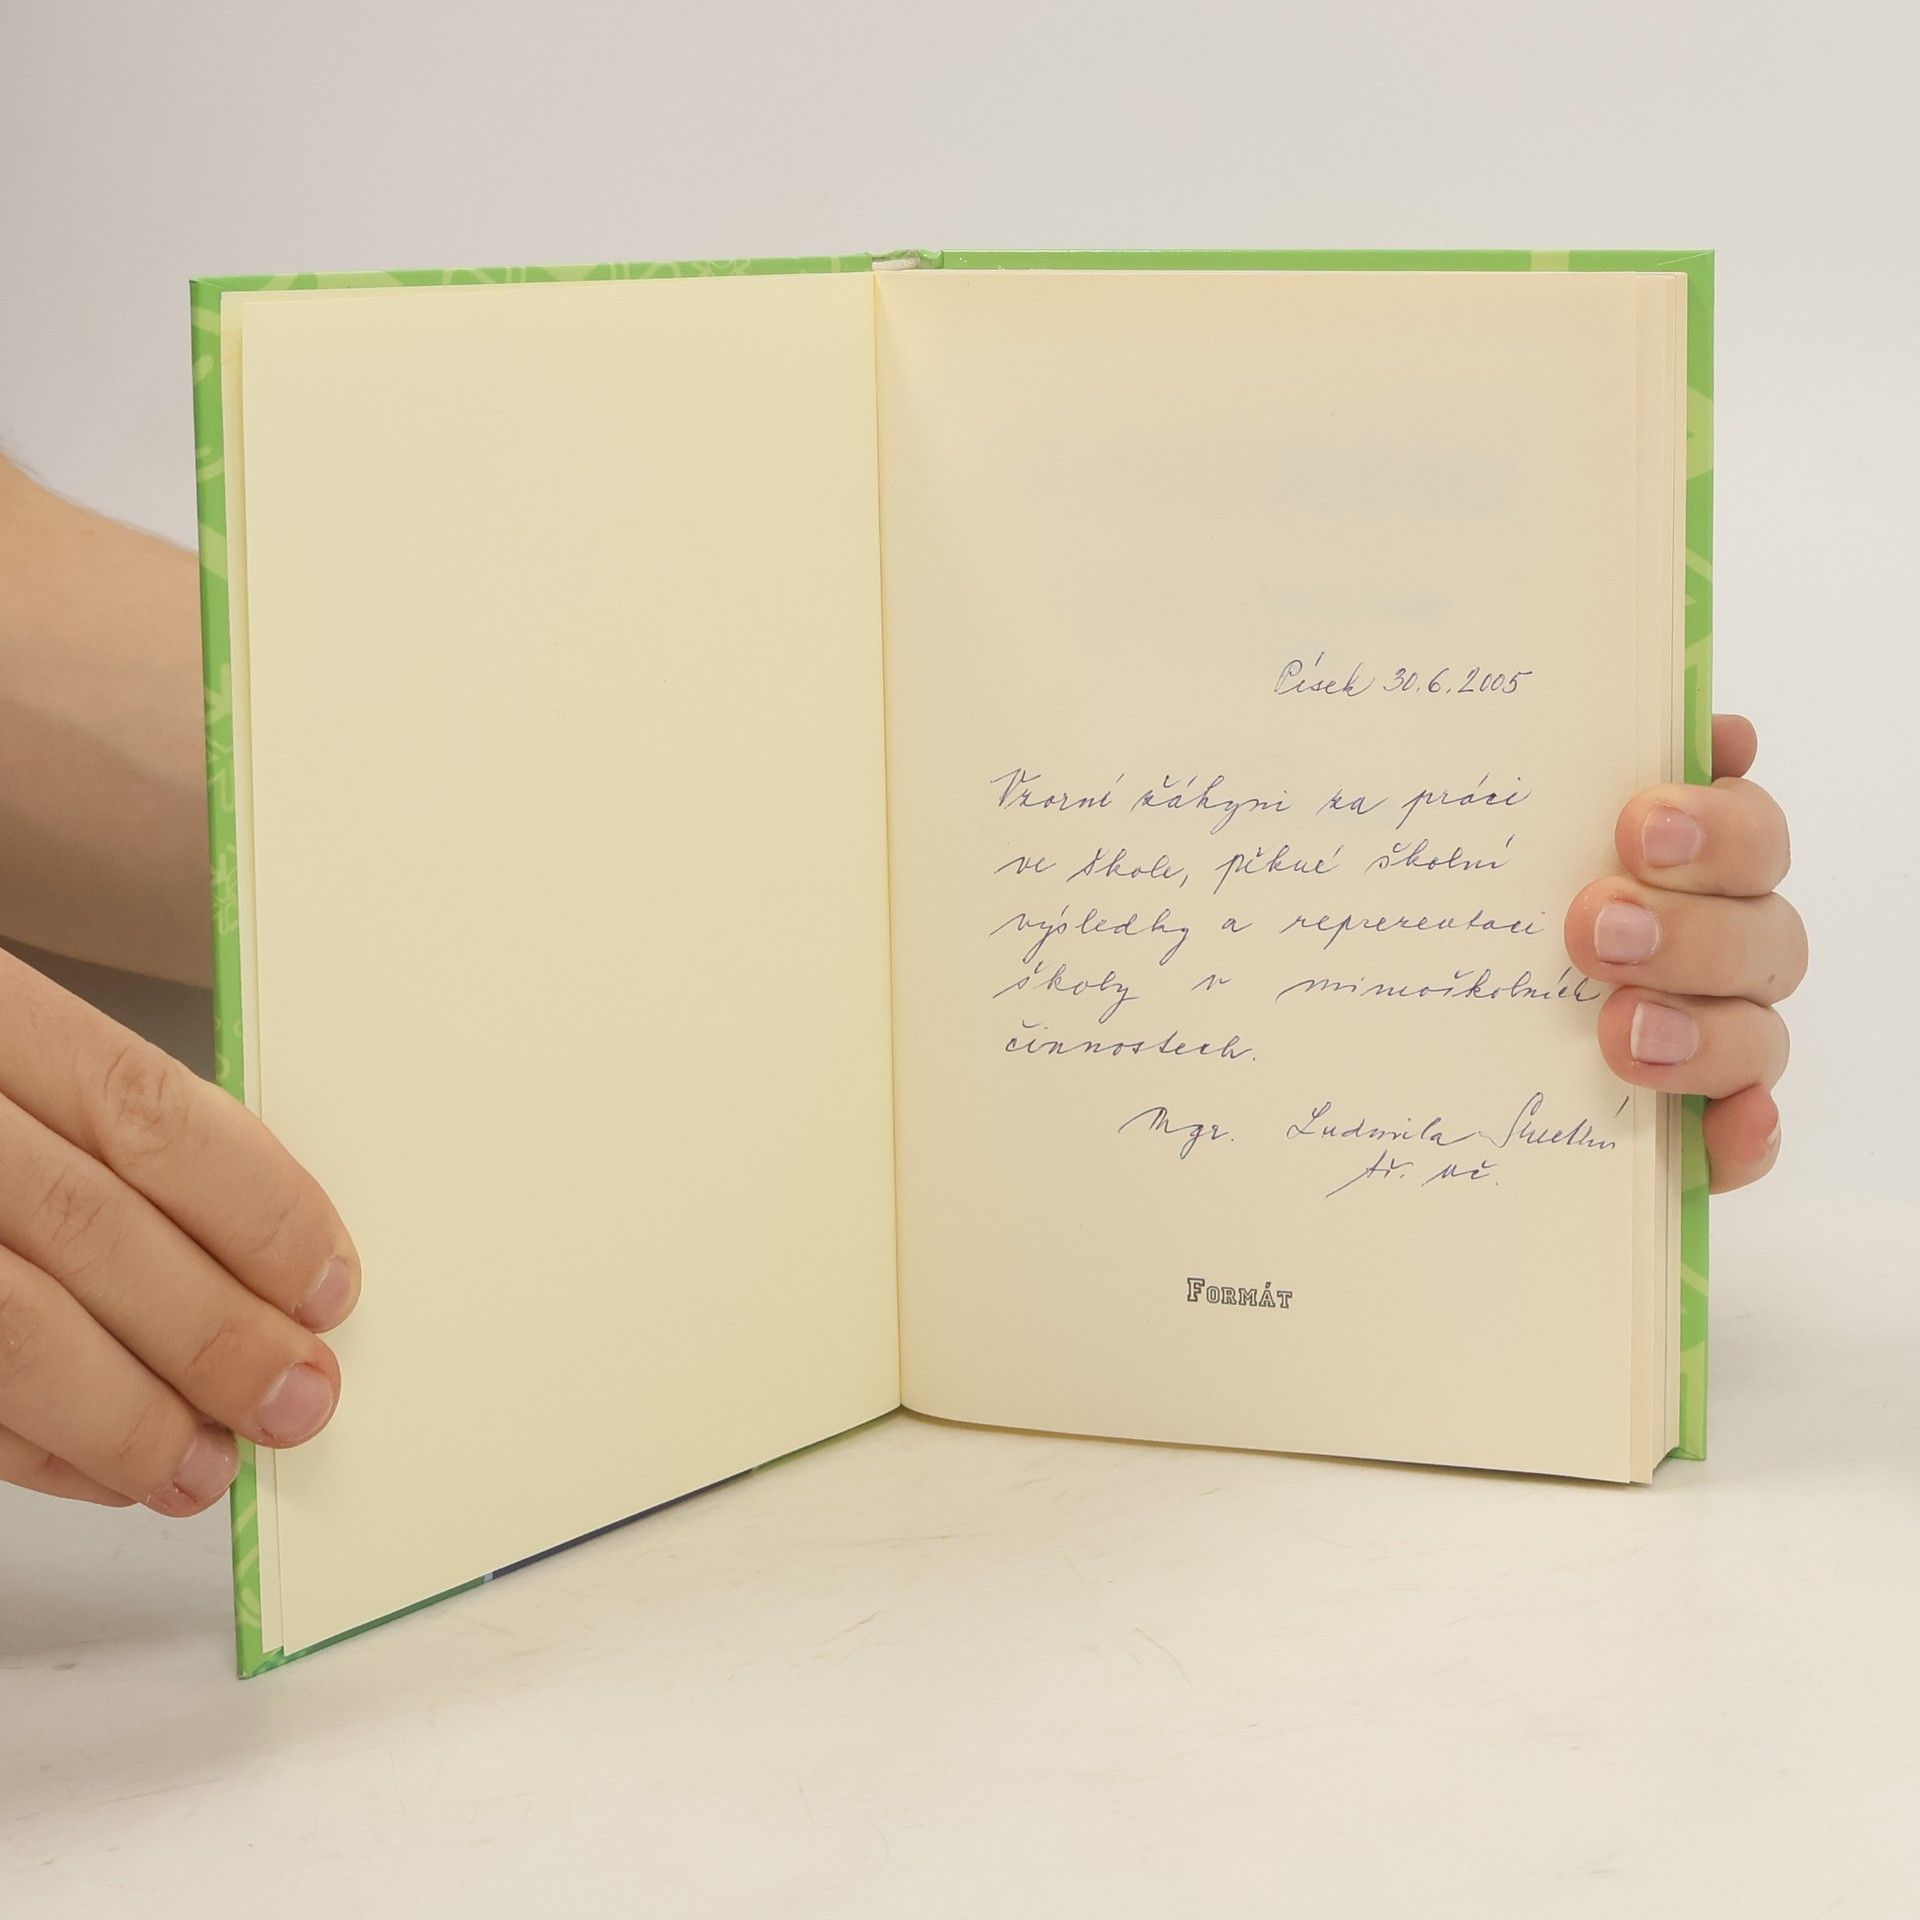 Písek 30.6.2005
Vzorné žákyni za práci
ve škole, pěkné školní
výsledky a reprezentaci
školy v mimoškolních
činnostech.
Mgr. Ludmila
tř. uč.
FORMÁT